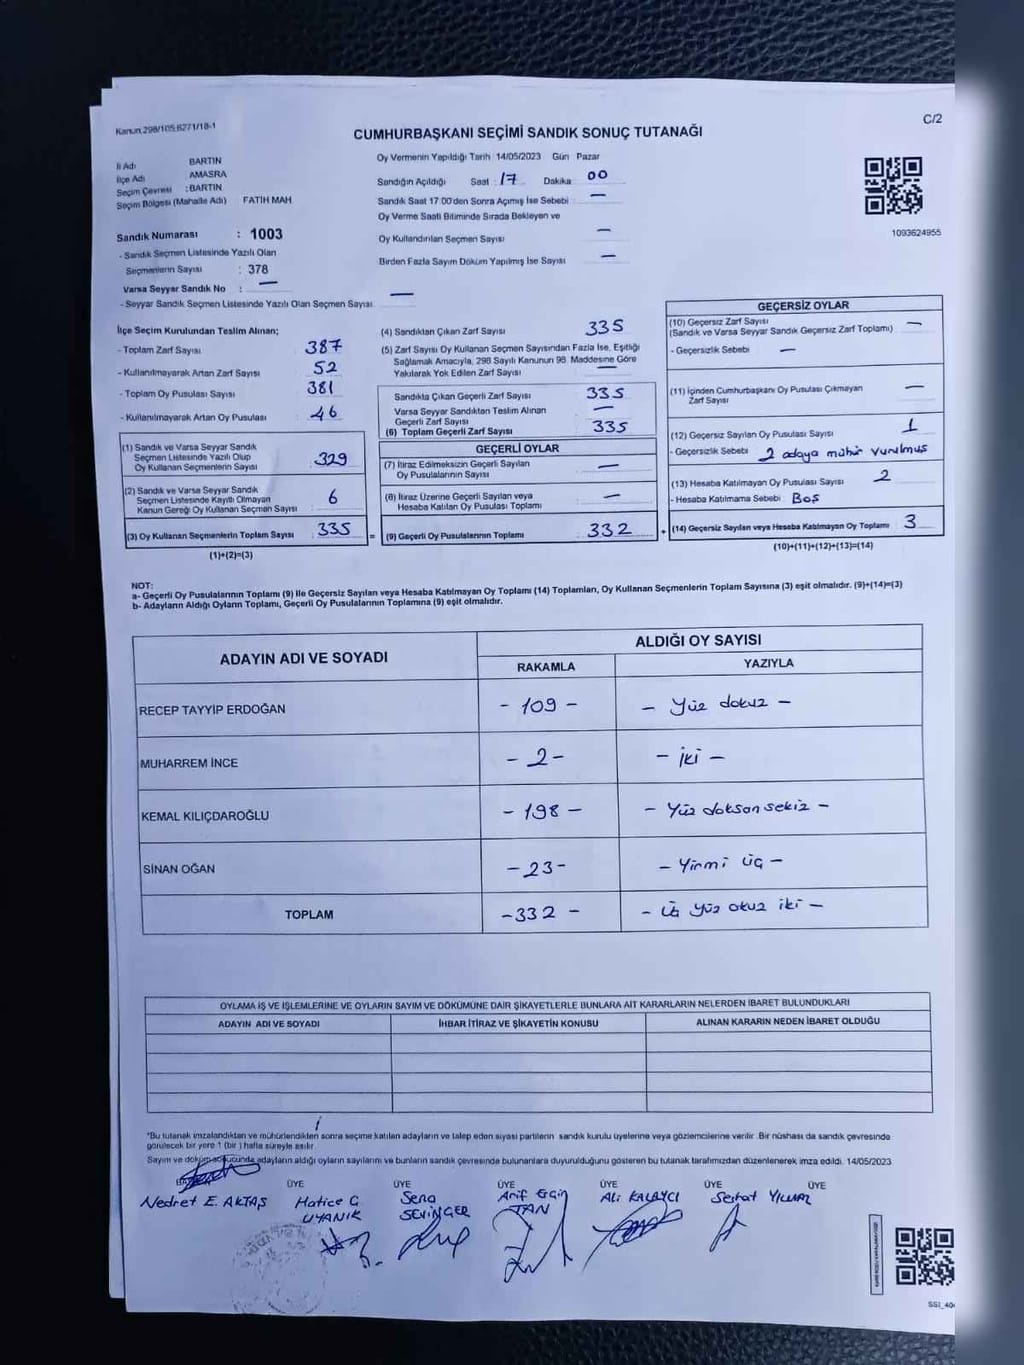 Kanun:298/105,6271/18-1
C/2
CUMHURBAŞKANI SEÇİMİ SANDIK SONUÇ TUTANAĞI
İl Adı BARTIN
İlçe Adı AMASRA
Seçim Çevresi :BARTIN
Seçim Bölgesi (Mahalle Adı) FATİH MAH
Sandık Numarası : 1003
- Sandık Seçmen Listesinde Yazılı Olan
Seçmenlerin Sayısı : 378
Varsa Seyyar Sandık No : —
- Seyyar Sandık Seçmen Listesinde Yazılı Olan Seçmen Sayısı —
Oy Vermenin Yapıldığı Tarih 14/05/2023 Gün Pazar
Sandığın Açıldığı Saat : 17 Dakika 00
Sandık Saat 17.00'den Sonra Açımış İse Sebebi : —
Oy Verme Saati Bitiminde Sırada Bekleyen ve
Oy Kullandırılan Seçmen Sayısı —
Birden Fazla Sayım Döküm Yapılmış İse Sayısı —
1093624955
İlçe Seçim Kurulundan Teslim Alınan;
- Toplam Zarf Sayısı 387
- Kullanılmayarak Artan Zarf Sayısı 52
- Toplam Oy Pusulası Sayısı 381
- Kullanılmayarak Artan Oy Pusulası 46
(1) Sandık ve Varsa Seyyar Sandık
Seçmen Listesinde Yazılı Olup
Oy Kullanan Seçmenlerin Sayısı 329
(2) Sandık ve Varsa Seyyar Sandık
Seçmen Listesinde Kayıtlı Olmayan
Kanun Gereği Oy Kullanan Seçmen Sayısı 6
(3) Oy Kullanan Seçmenlerin Toplam Sayısı 335
(1)+(2)=(3)
=
(4) Sandıktan Çıkan Zarf Sayısı 335
(5) Zarf Sayısı Oy Kullanan Seçmen Sayısından Fazla İse, Eşitliği
Sağlamak Amacıyla, 298 Sayılı Kanunun 98. Maddesine Göre
Yakılarak Yok Edilen Zarf Sayısı —
Sandıkta Çıkan Geçerli Zarf Sayısı 335
Varsa Seyyar Sandıktan Teslim Alınan
Geçerli Zarf Sayısı —
(6) Toplam Geçerli Zarf Sayısı 335
GEÇERLİ OYLAR
(7) İtiraz Edilmeksizin Geçerli Sayılan
Oy Pusulalarının Sayısı —
(8) İtiraz Üzerine Geçerli Sayılan veya
Hesaba Katılan Oy Pusulası Toplamı —
(9) Geçerli Oy Pusulalarının Toplamı 332
+
GEÇERSİZ OYLAR
(10) Geçersiz Zarf Sayısı —
(Sandık ve Varsa Seyyar Sandık Geçersiz Zarf Toplamı)
- Geçersizlik Sebebi —
(11) İçinden Cumhurbaşkanı Oy Pusulası Çıkmayan
Zarf Sayısı —
(12) Geçersiz Sayılan Oy Pusulası Sayısı 1
- Geçersizlik Sebebi 2 adaya mühür vurulmuş
(13) Hesaba Katılmayan Oy Pusulası Sayısı 2
- Hesaba Katılmama Sebebi Boş
(14) Geçersiz Sayılan veya Hesaba Katılmayan Oy Toplamı 3
(10)+(11)+(12)+(13)=(14)
NOT:
a- Geçerli Oy Pusulalarının Toplamı (9) ile Geçersiz Sayılan veya Hesaba Katılmayan Oy Toplamı (14) Toplamları, Oy Kullanan Seçmenlerin Toplam Sayısına (3) eşit olmalıdır. (9)+(14)=(3)
b- Adayların Aldığı Oyların Toplamı, Geçerli Oy Pusulalarının Toplamına (9) eşit olmalıdır.
ADAYIN ADI VE SOYADI ALDIĞI OY SAYISI
RAKAMLA YAZIYLA
RECEP TAYYİP ERDOĞAN - 109 - - Yüz dokuz -
MUHARREM İNCE - 2 - - iki -
KEMAL KILIÇDAROĞLU - 198 - - Yüz doksan sekiz -
SİNAN OĞAN - 23 - - Yirmi üç -
TOPLAM - 332 - - Üç yüz otuz iki -
OYLAMA İŞ VE İŞLEMLERİNE VE OYLARIN SAYIM VE DÖKÜMÜNE DAİR ŞİKAYETLERLE BUNLARA AİT KARARLARIN NELERDEN İBARET BULUNDUKLARI
ADAYIN ADI VE SOYADI İHBAR İTİRAZ VE ŞİKAYETİN KONUSU ALINAN KARARIN NEDEN İBARET OLDUĞU
*Bu tutanak imzalandıktan ve mühürlendikten sonra seçime katılan adayların ve talep eden siyasi partilerin sandık kurulu üyelerine veya gözlemcilerine verilir. Bir nüshası da sandık çevresinde
görülecek bir yere 1 (bir) hafta süreyle asılır.
Sayım ve döküm sonucunda adayların aldığı oyların sayılarını ve bunların sandık çevresinde bulunanlara duyurulduğunu gösteren bu tutanak tarafımızdan düzenlenerek imza edildi. 14/05/2023
ÜYE ÜYE ÜYE ÜYE ÜYE ÜYE
Nedret E. AKTAŞ Hatice G. UYANIK Sena SEVİNGER Arif Ergin TAN Ali KALAYCI Serhat YILMAZ